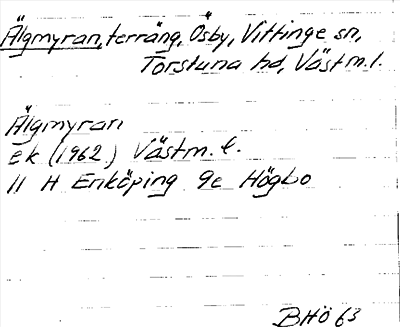 Älgmyran, terräng, Ösby, Vittinge sn,
Torstuna hd, Västm. l.
Älgmyran
ek (1962) Västm. l.
11 H Enköping 9e Högbo
BHÖ 63